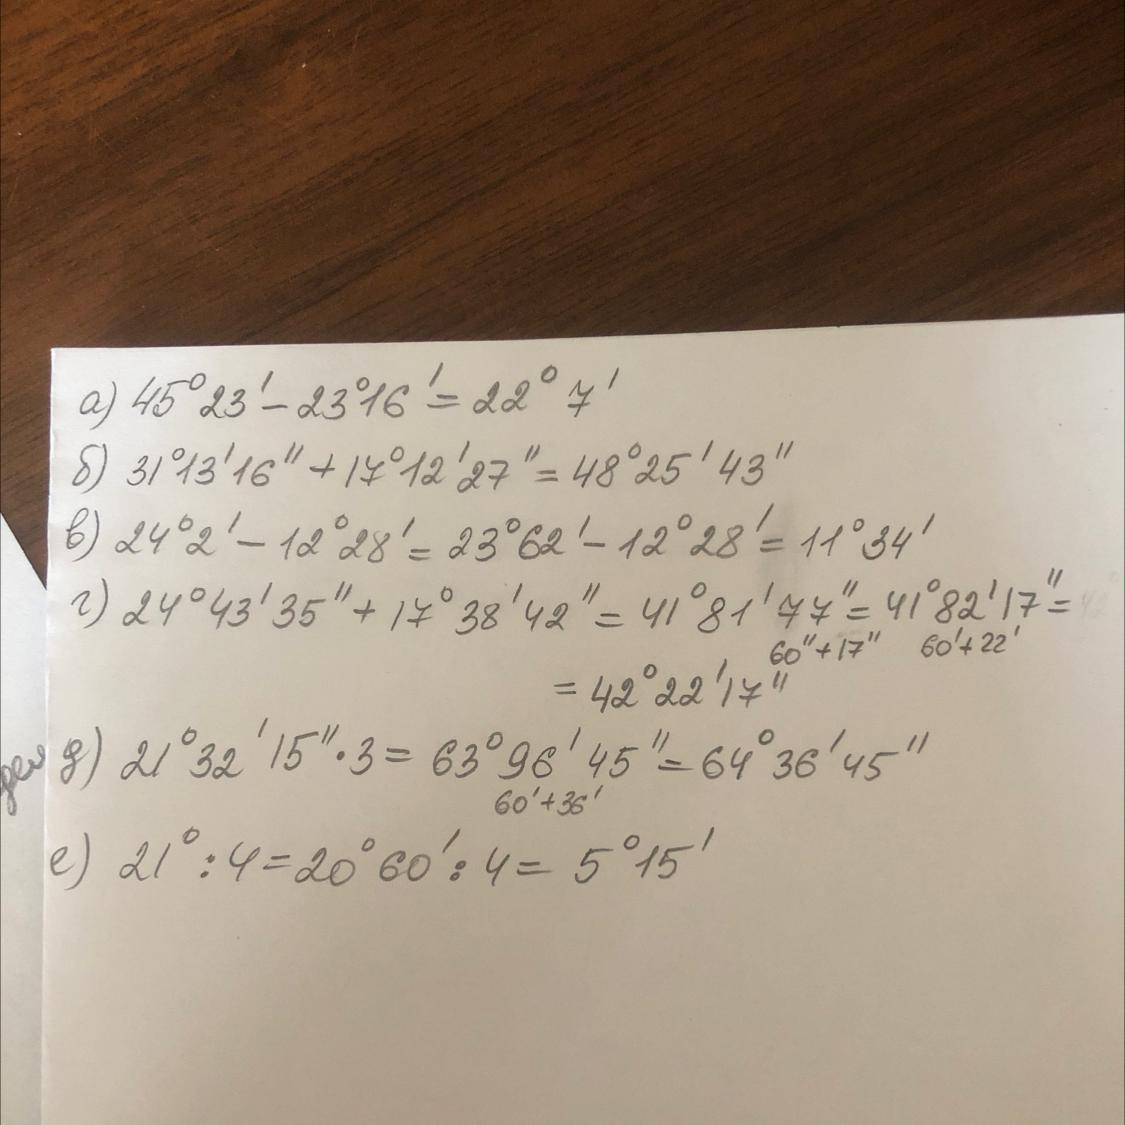 а) 45°23' - 23°16' = 22°7'
б) 31°13'16" + 17°12'27" = 48°25'43"
в) 24°2' - 12°28' = 23°62' - 12°28' = 11°34'
г) 24°43'35" + 17°38'42" = 41°81'77" = 41°82'17" =
60"+17" 60'+22'
= 42°22'17"
д) 21°32'15" · 3 = 63°96'45" = 64°36'45"
60'+36'
е) 21° : 4 = 20°60' : 4 = 5°15'